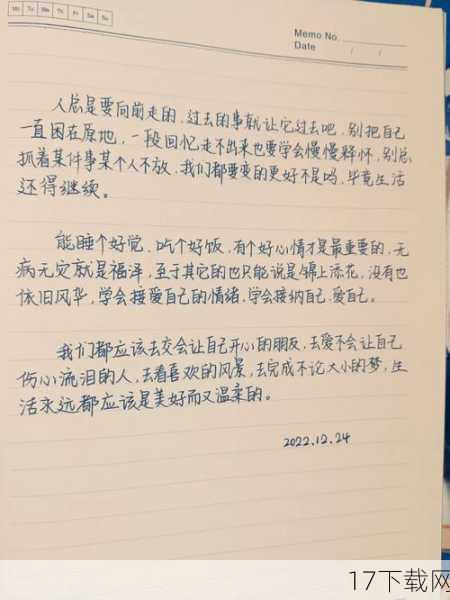 Mo Tu We Th Fr Sa Su
Memo No.
Date / /
人总是要向前走的，过去的事就让它过去吧，别把自己
一直困在原地，一段回忆走不出来也要学会慢慢释怀，别总
抓着某件事某个人不放，我们都要变的更好不是吗，毕竟生活
还得继续。
能睡个好觉，吃个好饭，有个好心情才是最重要的，无
病无灾就是福泽，至于其它的也只能说是锦上添花，没有也
依旧风华，学会接爱自己的情绪，学会接纳自己，爱自己。
我们都应该去交会让自己开心的朋友，去爱不会让自己
伤心流泪的人，去看喜欢的风景，去完成不论大小的梦，生
活永远都应该是美好而又温柔的。
2022.12.24
17下载网